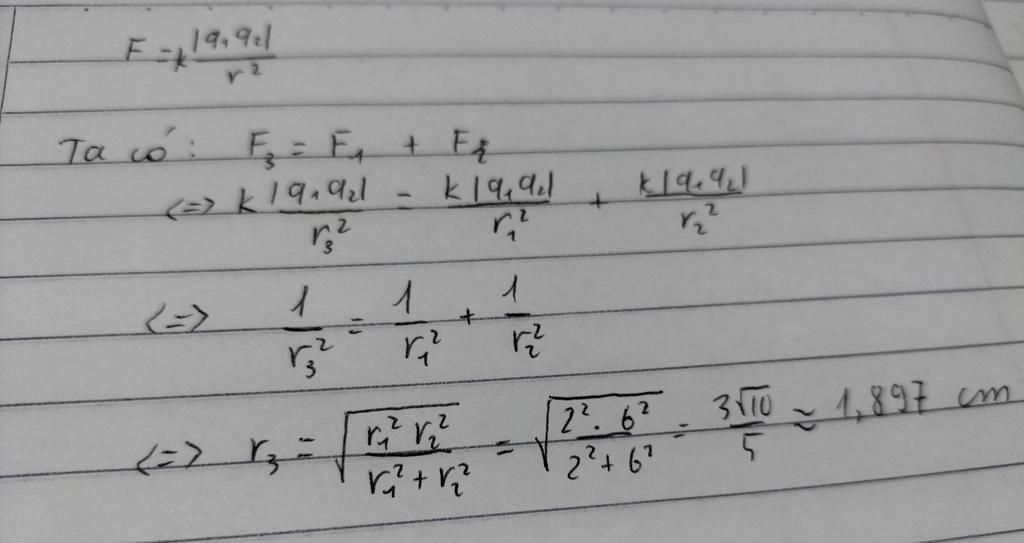 F = k |q₁q₂| / r²
Ta có: F₃ = F₁ + F₂
<=> k |q₁q₂| / r₃² = k |q₁q₂| / r₁² + k |q₁q₂| / r₂²
<=> 1 / r₃² = 1 / r₁² + 1 / r₂²
<=> r₃ = √(r₁² r₂² / (r₁² + r₂²)) = √(2² . 6² / (2² + 6²)) = 3√10 / 5 ≈ 1,897 cm